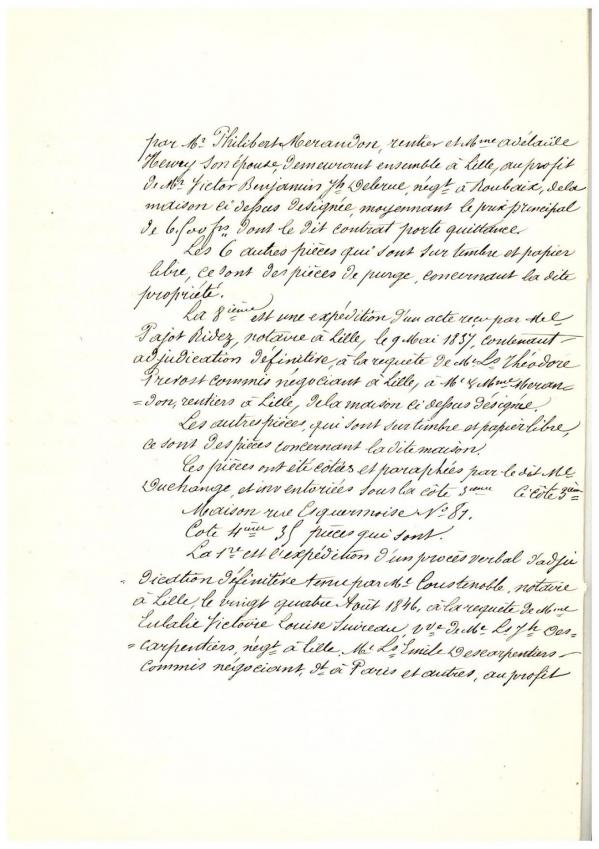 par Mr Philibert Merandon, rentier et Mme adélaïde
Henry son épouse, demeurant ensemble à Lille, au profit
de Mr Victor Benjamin Jh Delerue, négt à Roubaix, de la
maison ci dessus designée, moyennant le prix principal
de 6.500 frs dont le dit contrat porte quittance.
Les 6 autres pièces qui sont sur timbre et papier
libre, ce sont des pièces de purge, concernant la dite
propriété.
La 8ième est une expédition d'un acte reçu par Me
Pajot Bidez, notaire à Lille, le 9 Mai 1837, contenant
adjudication définitive, à la requête de Mr Ls Théodore
Prevost commis négociant à Lille, à Mr & Mme Meran=
=don, rentiers à Lille, de la maison ci dessus désignée.
Les autres pièces, qui sont sur timbre et papier libre,
ce sont des pièces concernant la dite maison.
Ces pièces ont été côtées et paraphées par le dit Me
Duchange, et inventoriées sous la côte 3ième Ci côte 3ième
Maison rue Esquermoise No 81.
Cote 4ième 35 pièces qui sont.
La 1re est l'expédition d'un procès verbal d'adju
=dication définitive tenu par Me Coustenoble, notaire
à Lille, le vingt quatre Août 1846, à la requête de Mme
Eulalie Victoire Louise Suireau, vve de Mr Ls Jh Des=
=carpentiers, négt à Lille, Mr Ls Emile Descarpentiers
commis négociant, dt à Paris et autres, au profit